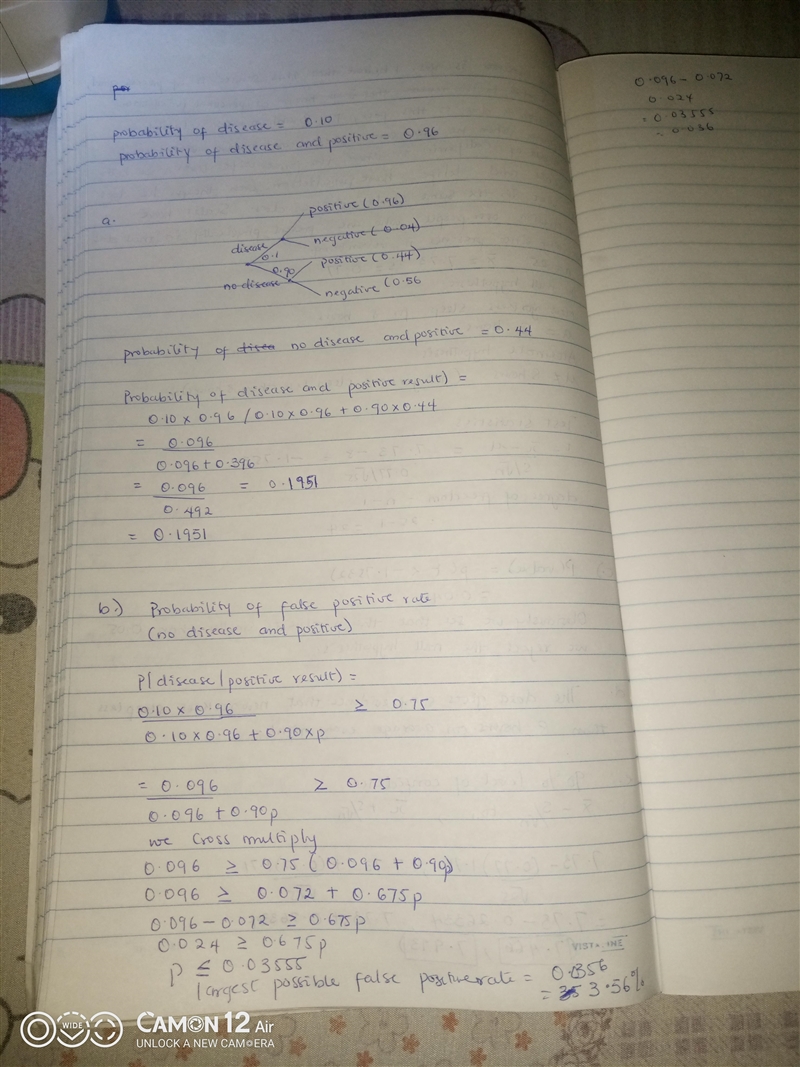 probability of disease = 0.10
probability of disease and positive = 0.96
a.
positive (0.96)
disease
negative (0.04)
0.1
positive (0.44)
0.90
no disease
negative (0.56
probability of disea no disease and positive = 0.44
Probability of disease and positive result) =
0.10 x 0.96 / 0.10 x 0.96 + 0.90 x 0.44
= 0.096
0.096 + 0.396
= 0.096 = 0.1951
0.492
= 0.1951
b.) Probability of false positive rate
(no disease and positive)
P( disease / positive result) =
0.10 x 0.96 ≥ 0.75
0.10 x 0.96 + 0.90 x p
= 0.096 ≥ 0.75
0.096 + 0.90p
we cross multiply
0.096 ≥ 0.75 ( 0.096 + 0.90p)
0.096 ≥ 0.072 + 0.675p
0.096 - 0.072 ≥ 0.675p
0.024 ≥ 0.675p
p ≤ 0.03555
largest possible false positive rate = 0.0356
= 3.56%
0.096 - 0.072
0.024
= 0.03555
= 0.036
WIDE
CAMON 12 Air
UNLOCK A NEW CAMERA